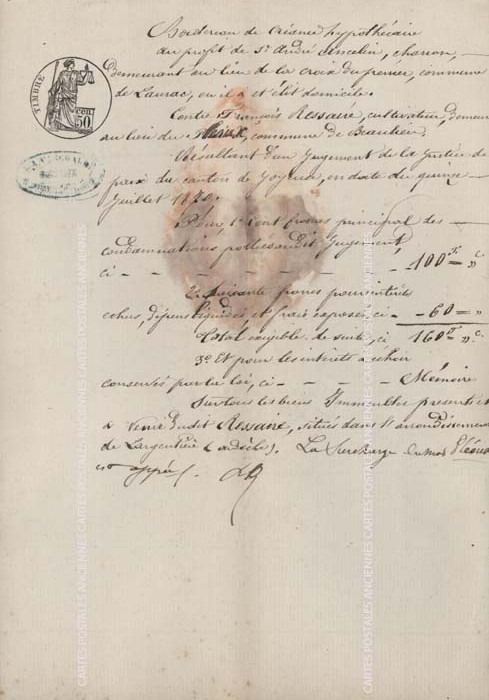 Bordereau de créance hypothécaire
au profit de Sr André Ancelin, charron,
demeurant au lieu de la croix du premier, commune
de Lanas, où il a et élit domicile.
Contre François Ressaire, cultivateur, demeu
au lieu du commune de Beaulieu.
Résultant d'un Jugement de la Justice de
paix du canton de Joyeuse, en date du quinze
Juillet
Pour 1º Cent francs principal des
condamnations portées audit Jugement,
ci - - - - - - - 100 f = » c.
2º Soixante francs pour intérêts
échus, dépens liquidés et frais exposés, ci - 60 = »
Total exigible de suite, ci 160 f = » c.
3º Et pour les intérêts à échoir
conservés par la loi, ci - - - - Mémoire
Sur tous les biens Immeubles présents et
à venir dudit Ressaire, situés dans l'arrondissement
de Largentière (ardèche). La Surcharge du mot
est appr
TIMBRE
50
CARTES POSTALES ANCIENNES CARTES POSTALES ANCIENNES
CARTES POSTALES ANCIENNES CARTES POSTALES ANCIENNES